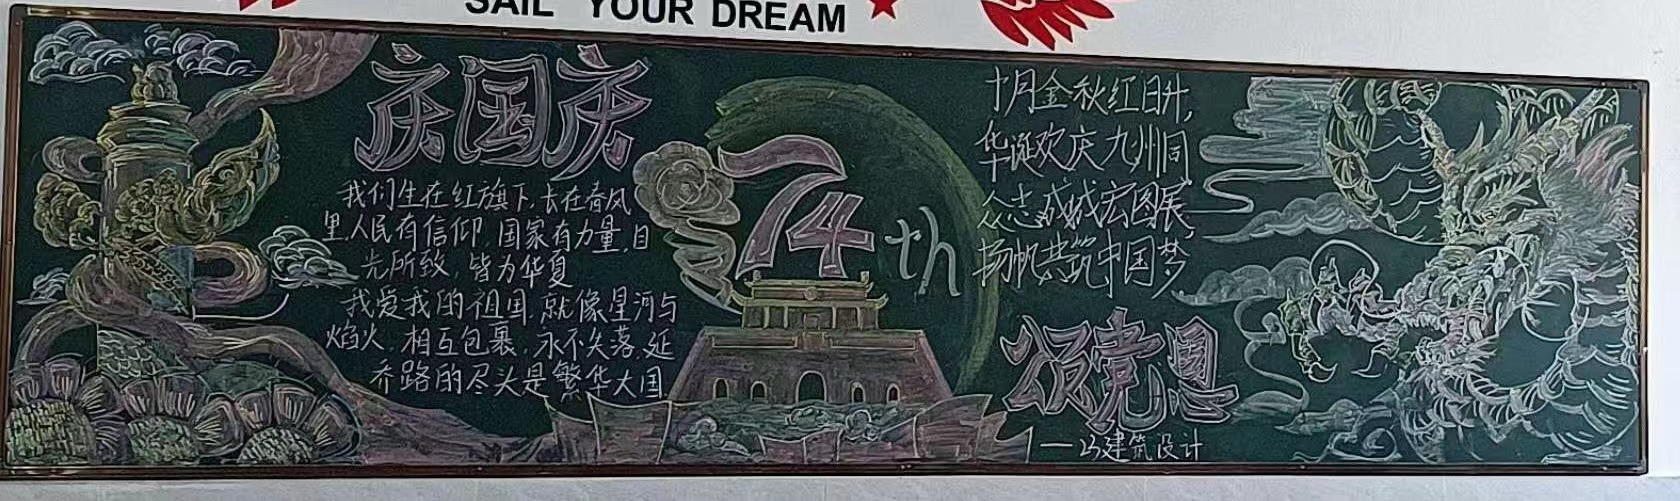 SAIL YOUR DREAM
庆国庆
我们生在红旗下,长在春风
里,人民有信仰,国家有力量,目
光所致,皆为华夏
我爱我的祖国,就像星河与
焰火,相互包裹,永不失落,延
乔路的尽头是繁华大国
74th
十月金秋红日升,
华诞欢庆九州同
众志成城宏图展,
扬帆共筑中国梦
颂党恩
建筑设计